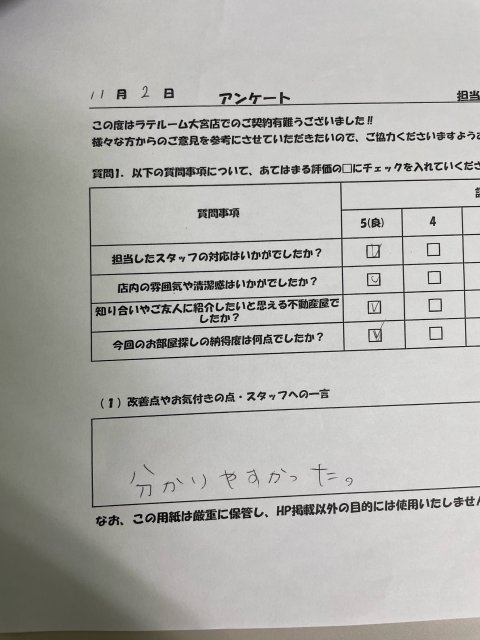 11月2日
アンケート
担当
この度はラテルーム大宮店でのご契約有難うございました!!
様々な方からのご意見を参考にさせていただきたいので、ご協力くださいますよう
質問1. 以下の質問事項について、あてはまる評価の□にチェックを入れてくださ
質問事項
5(良) 4
担当したスタッフの対応はいかがでしたか？
店内の雰囲気や清潔感はいかがでしたか？
知り合いやご友人に紹介したいと思える不動産屋で
したか？
今回のお部屋探しの納得度は何点でしたか？
(1)改善点やお気付きの点・スタッフへの一言
分かりやすかった。
なお、この用紙は厳重に保管し、HP掲載以外の目的には使用いたしません